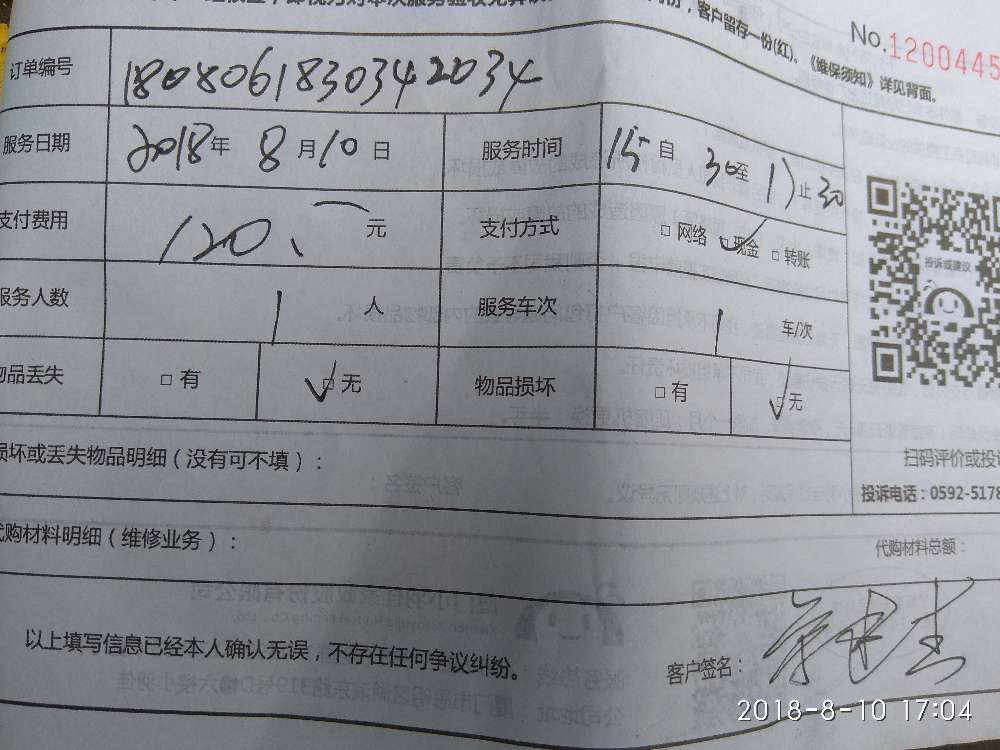 客户留存一份(红)。《维保须知》详见背面。
No.1200445
订单编号 1808061830342034
服务日期 2018年 8月10日 服务时间 15自 30至 17止30
支付费用 120、一 元 支付方式 □网络 ☑现金 □转账
服务人数 1 人 服务车次 1 车/次
物品丢失 □有 ☑无 物品损坏 □有 ☑无
投诉或建议
损坏或丢失物品明细(没有可不填):
扫码评价或投诉
投诉电话:0592-5178
代购材料明细(维修业务):
代购材料总额:
以上填写信息已经本人确认无误,不存在任何争议纠纷。
客户签名:
2018-8-10 17:04